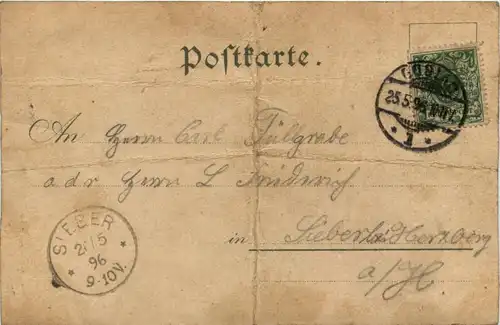 Postkarte.
GOSLAR
25.5.96
* 1 *
An Herrn Carl Füllgrabe
adr Herrn L Friedrich
in Sieber bei Herzberg
a/H
SIEBER
5
96
9-10V.